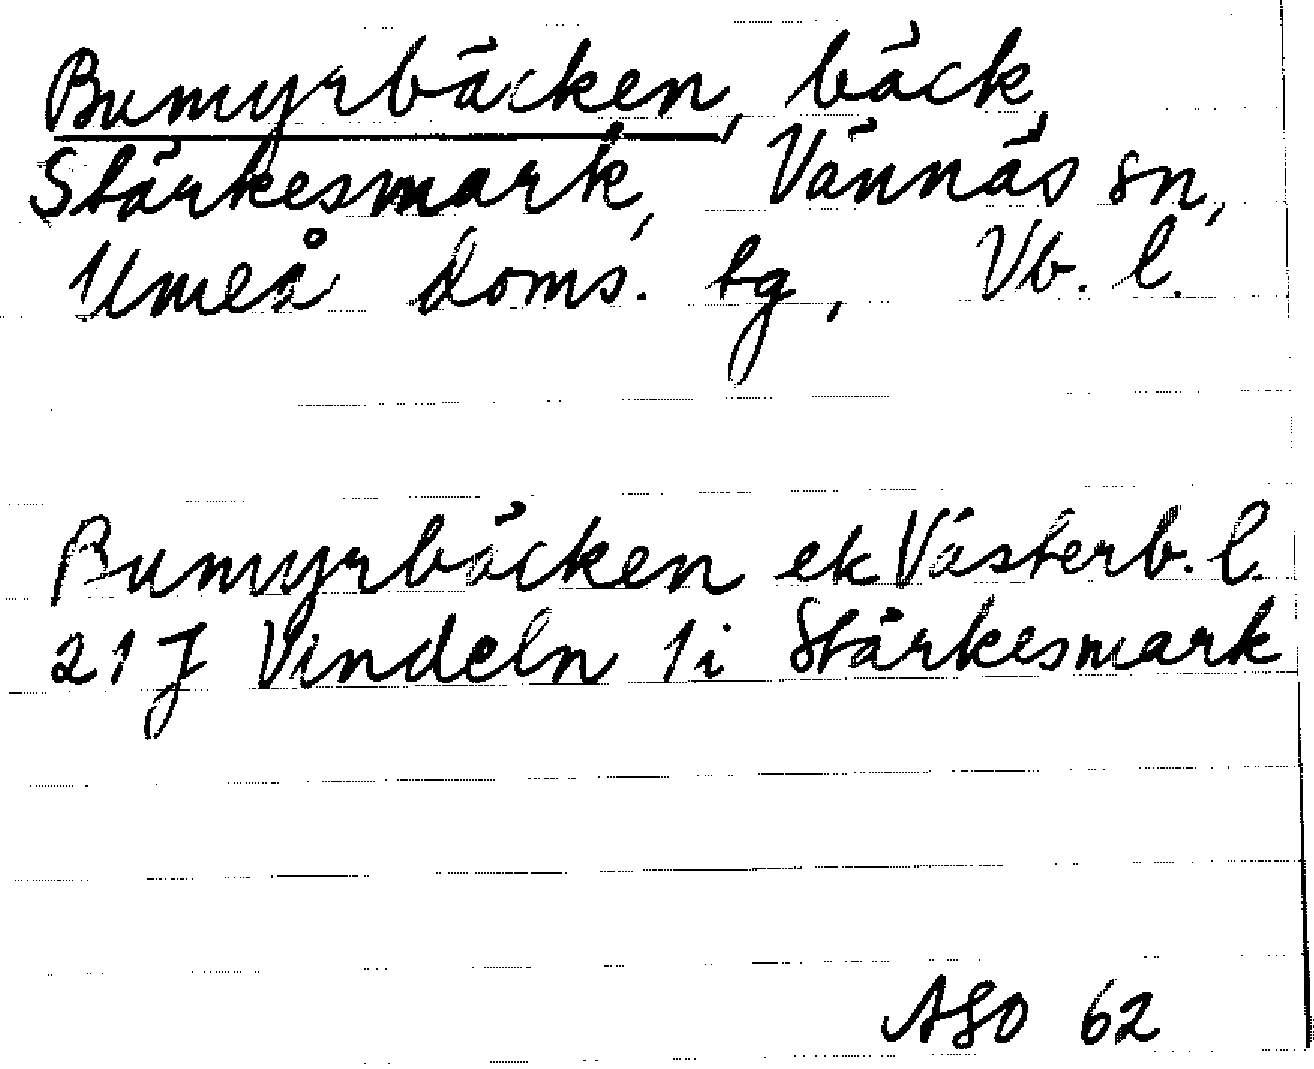 Bumyrbäcken, bäck,
Stärkesmark, Vännäs sn,
Umeå doms. tg, Vb. l.
Bumyrbäcken ek Västerb. l.
21 J Vindeln 1i Stärkesmark
ASO 62